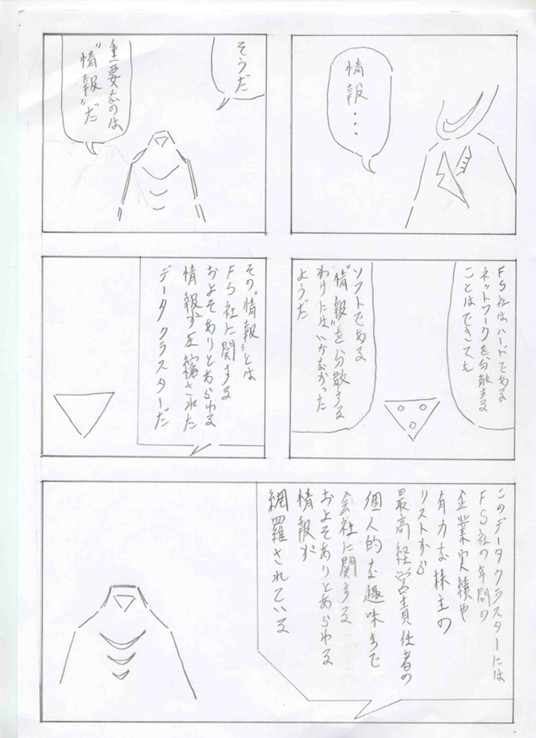 情報・・・
そうだ
重要なのは
"情報"だ
FS社はハードである
ネットワークを分散する
ことはできても
ソフトである
"情報"を分散する
わけにはいかなかった
ようだ
その"情報"とは
FS社に関する
およそありとあらゆる
情報が圧縮された
データクラスターだ
このデータクラスターには
FS社の年間の
企業実績や
有力な株主の
リストから
最高経営責任者の
個人的な趣味まで
会社に関する
およそありとあらゆる
情報が
網羅されている